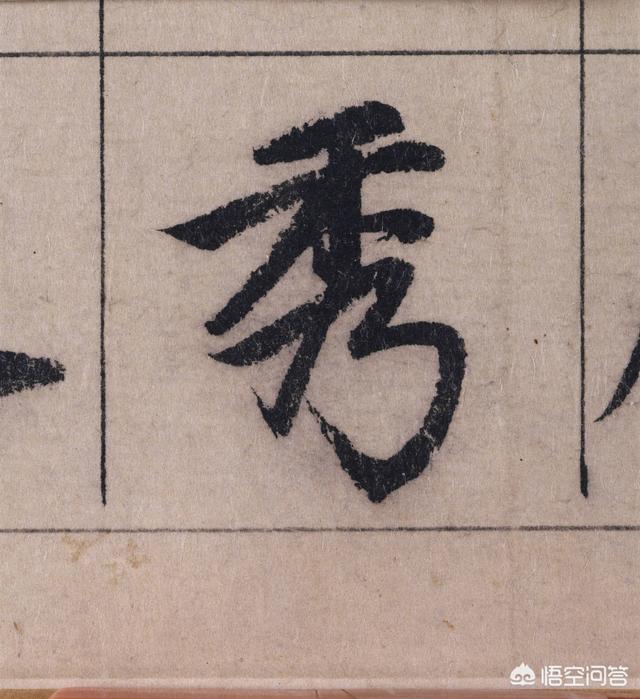 秀
悟空问答